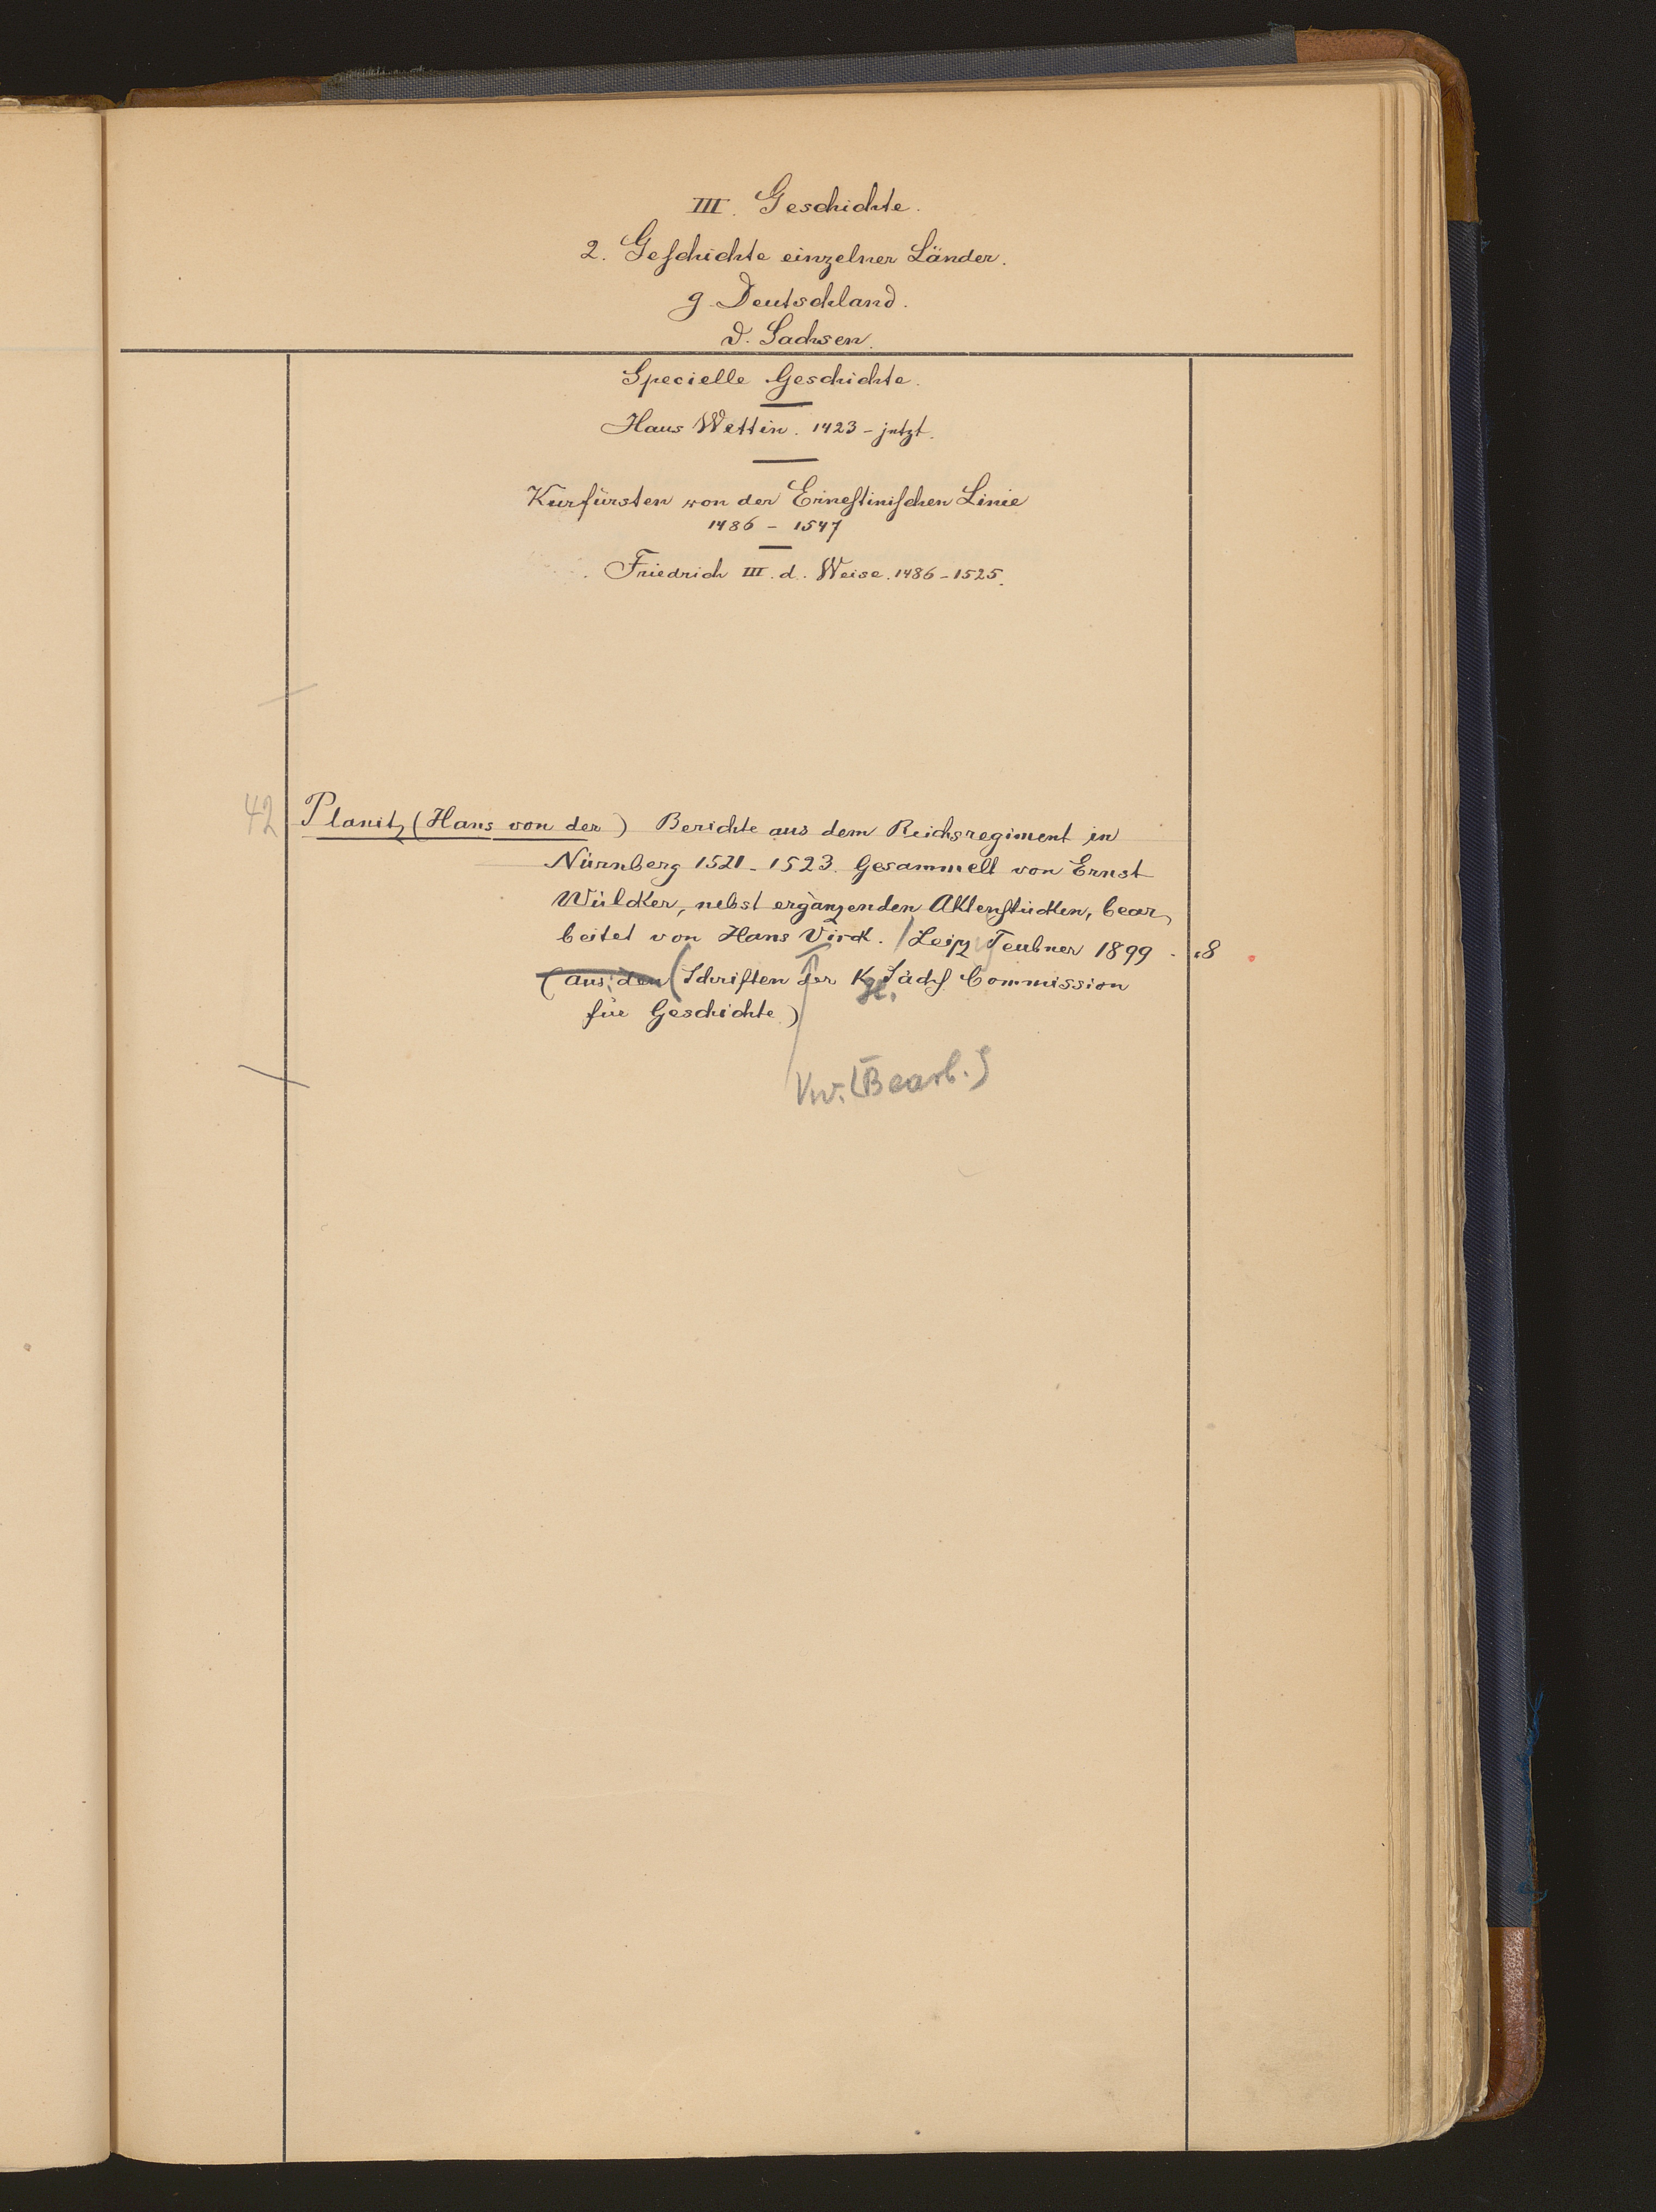 III. Geschichte.
2. Geschichte einzelner Länder.
g. Deutschland.
d. Sachsen.
Specielle Geschichte.
Haus Wettin. 1423 - jetzt.
Kurfürsten von der Ernestinischen Linie
1486 - 1547
Friedrich III. d. Weise. 1486 - 1525.
42 Planitz (Hans von der) Berichte aus dem Reichsregiment in
Nürnberg 1521 - 1523. Gesammelt von Ernst
Wülcker, nebst ergänzenden Aktenstücken, bear
beitet von Hans Virck. / Leipz Teubner 1899. 8
(aus den (Schriften der K. Sächs Commission
für Geschichte)
Vw. (Bearb.)